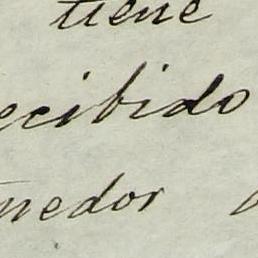 tiene
ecibido
nedor